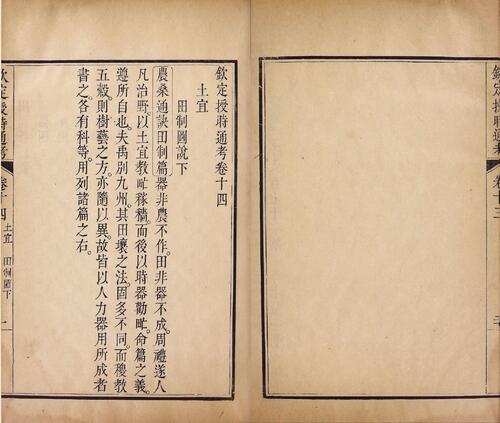 欽定授時通考卷十三
欽定授時通考卷十四
土宜
田制圖說下
農桑通訣田制篇器非農不作。田非器不成。周禮遂人
凡治野。以土宜教甿稼穡。而後以時器勸甿。命篇之義。
遵所自也。夫禹別九州。其田壤之法。固多不同。而稷教
五穀。則樹藝之方。亦隨以異。故皆以人力器用所成者
書之。各有科等。用列諸篇之右。
欽定授時通考 卷十四 土宜 田制圖下 一